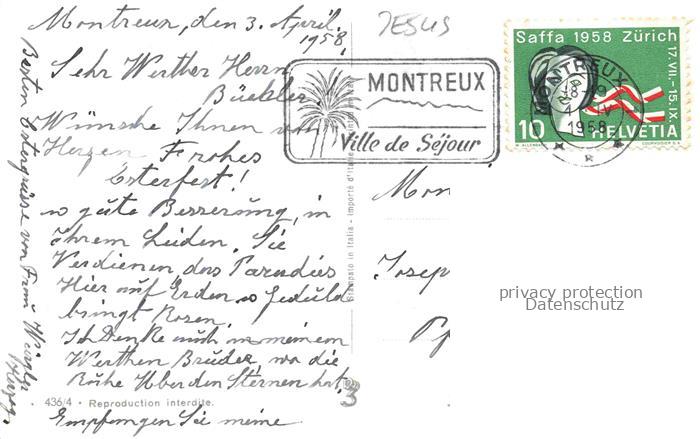 Montreux, den 3. April.
1958,
Sehr Werther Herrn
Büchler.
Wünsche Ihnen von
Herzen Frohes
Osterfest!
u gute Besserung, in
Ihrem Leiden. Sie
Verdienen das Paradies
Hier auf Erden u Geduld
bringt Rosen.
Ich Denke auch an meinem
Werthen Bruder, wo die
Ruhe Uber den Sternen hat.
Empfangen Sie meine
Besten Ostergrüsse von Frau
Herzog.
436/4 • Reproduction interdite.
Stampato in Italia - importé d'Italie
JESUS
MONTREUX
Ville de Séjour
Saffa 1958 Zürich
17.VII.-15.IX.
10 HELVETIA
COURVOISIER S.A.
MONTREUX
IV
1958
Mon
Josep
3
privacy protection
Datenschutz